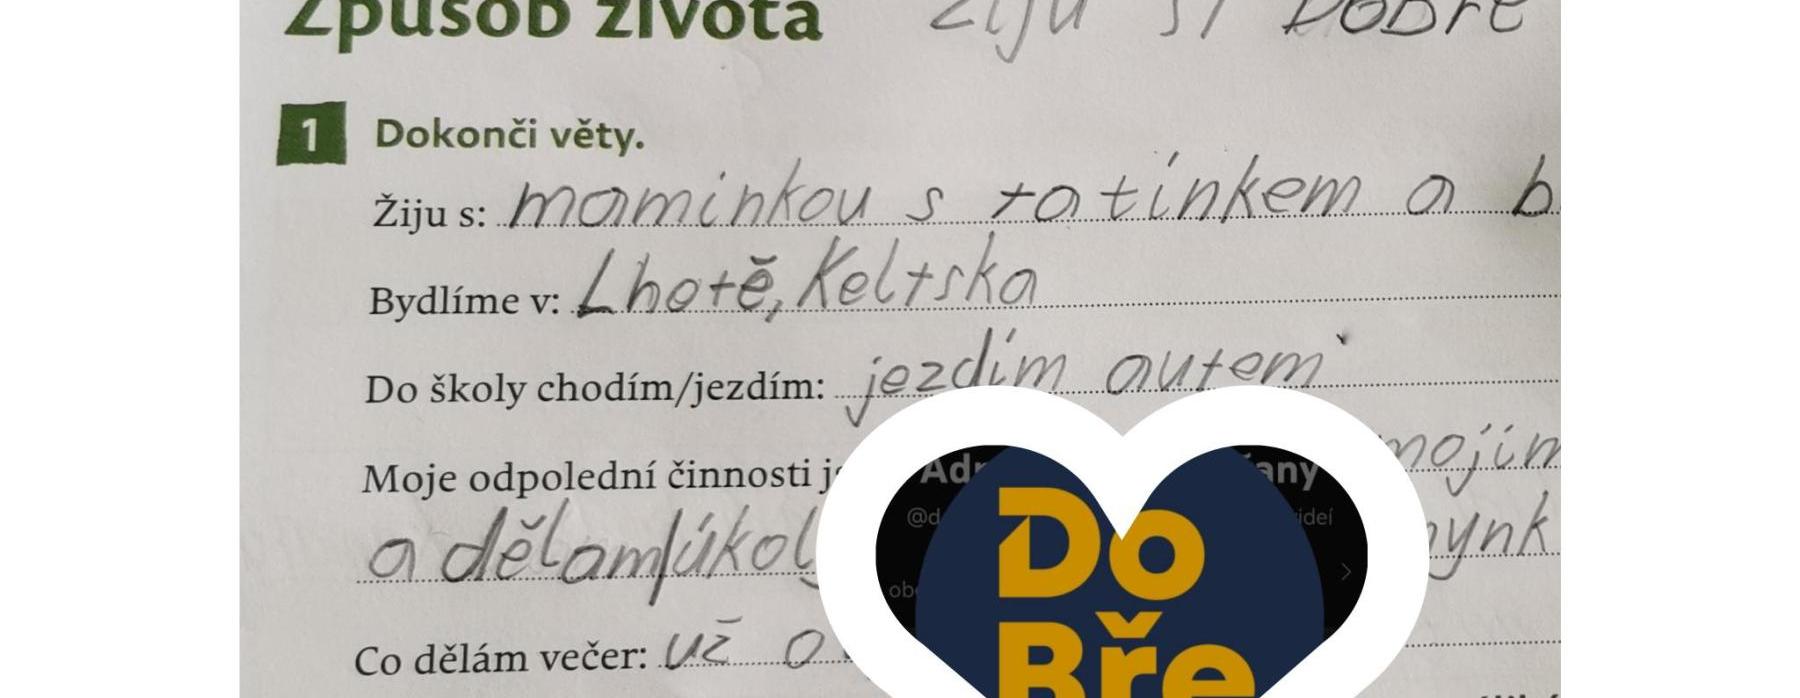 Způsob života Žiju si DOBŘE
1 Dokonči věty.
Žiju s: maminkou s tatínkem a
Bydlíme v: Lhotě, Keltská
Do školy chodím/jezdím: jezdím autem
Moje odpolední činnosti
a dělám úkol
Co dělám večer: už
Do
Bře